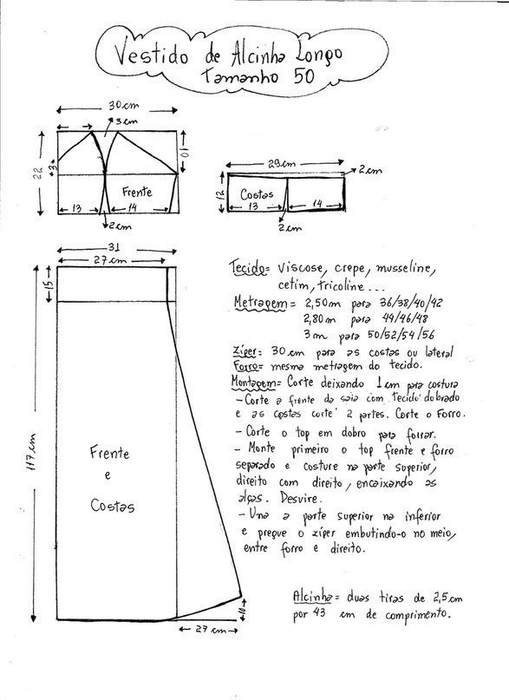 Vestido de Alcinha Longo
Tamanho 50
30 cm
3 cm
22
3
10
Frente
13
14
2 cm
29 cm
2 cm
12
Costas
13
14
2 cm
31
27 cm
15
117 cm
Frente
e
Costas
27 cm
Tecido= viscose, crepe, musseline,
cetim, tricoline...
Metragem = 2,50m para 36/38/40/42
2,80m para 44/46/48
3m para 50/52/54/56
Zíper= 30 cm para as costas ou lateral
Forro= mesma metragem do tecido.
Montagem= Corte deixando 1cm para costura
- Corte a frente da saia com tecido dobrado
e as costas corte 2 partes. Corte o Forro.
- Corte o top em dobro para forrar.
- Monte primeiro o top frente e forro
separado e costure na parte superior,
direito com direito, encaixando as
alças. Desvire.
- Una a parte superior na inferior
e pregue o zíper embutindo-o no meio,
entre forro e direito.
Alcinha= duas tiras de 2,5cm
por 43 cm de comprimento.